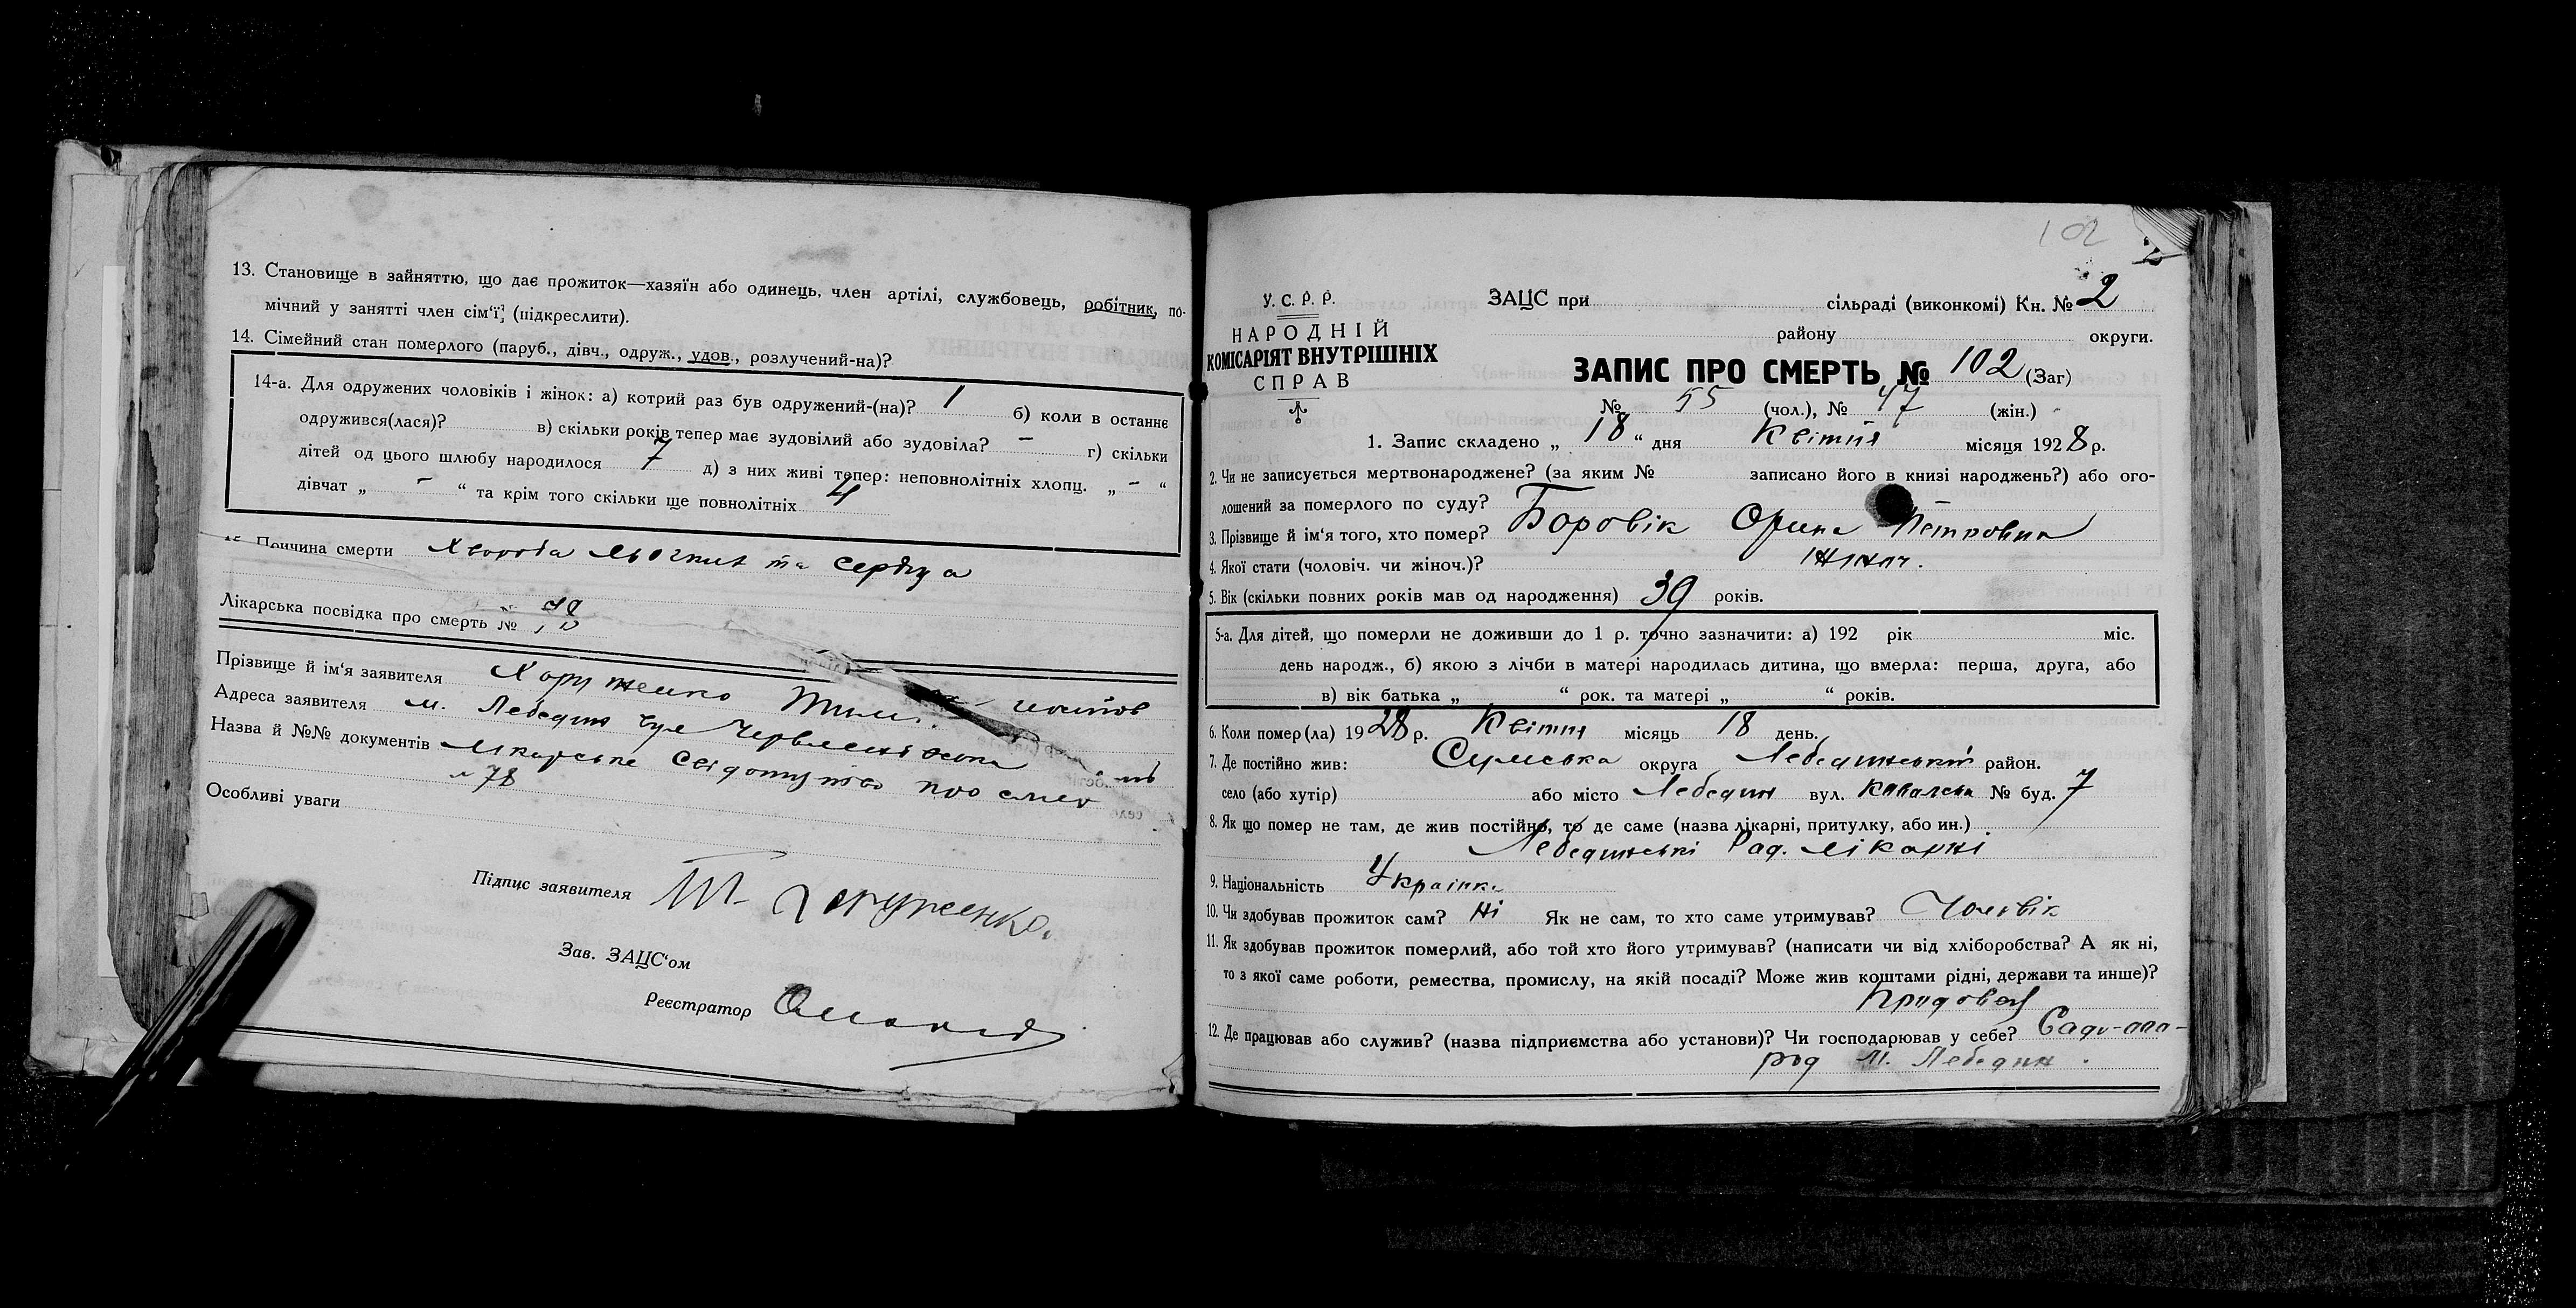 13. Становище в зайняттю, що дає прожиток—хазяїн або одинець, член артілі, службовець, робітник, по-
мічний у занятті член сім'ї, (підкреслити).
14. Сімейний стан померлого (паруб., дівч., одруж., удов., розлучений-на)?
14-а. Для одружених чоловіків і жінок: а) котрий раз був одружений-(на)? 1 б) коли в останнє
одружився(лася)? в) скільки років тепер має зудовілий або зудовіла? — г) скільки
дітей од цього шлюбу народилося 7 д) з них живі тепер: неповнолітніх хлопц. „ — “
дівчат „ — “ та крім того скільки ще повнолітніх 4
Причина смерти Хвороба легких та серця
Лікарська посвідка про смерть №
Прізвище й ім'я заявителя Хоруженко
Адреса заявителя м. Лебедин вул
Назва й №№ документів лікарське свідоцтво про смер
№ 78
Особливі уваги
Підпис заявителя Т. Хоруженко.
Зав. ЗАЦС'ом
Реєстратор
102
У. С. Р. Р.
НАРОДНІЙ
КОМІСАРІЯТ ВНУТРІШНІХ
СПРАВ
ЗАЦС при сільраді (виконкомі) Кн. № 2
району округи.
ЗАПИС ПРО СМЕРТЬ № 102 (Заг)
№ 55 (чол.), № 47 (жін.)
1. Запис складено „ 18 “ дня Квітня місяця 1928 р.
2. Чи не записується мертвонароджене? (за яким № записано його в книзі народжень?) або ого-
лошений за померлого по суду?
3. Прізвище й ім'я того, хто помер? Боровік Орина Петровна
4. Якої стати (чоловіч. чи жіноч.)? жіноч.
5. Вік (скільки повних років мав од народження) 39 років.
5-а. Для дітей, що померли не доживши до 1 р. точно зазначити: а) 192 рік міс.
день народж., б) якою з лічби в матері народилась дитина, що вмерла: перша, друга, або
в) вік батька „ “ рок. та матері „ “ років.
6. Коли помер(ла) 1928 р. Квітня місяць 18 день.
7. Де постійно жив: Сумська округа Лебединський район.
село (або хутір) або місто Лебедин вул. № буд. 7
8. Як що помер не там, де жив постійно, то де саме (назва лікарні, притулку, або ин.)
Лебединські Рад. лікарні
9. Національність Українка
10. Чи здобував прожиток сам? Ні Як не сам, то хто саме утримував? Чоловік
11. Як здобував прожиток померлий, або той хто його утримував? (написати чи від хліборобства? А як ні,
то з якої саме роботи, ремества, промислу, на якій посаді? Може жив коштами рідні, держави та инше)?
12. Де працював або служив? (назва підприємства або установи)? Чи господарював у себе? Саду-
м. Лебедин.